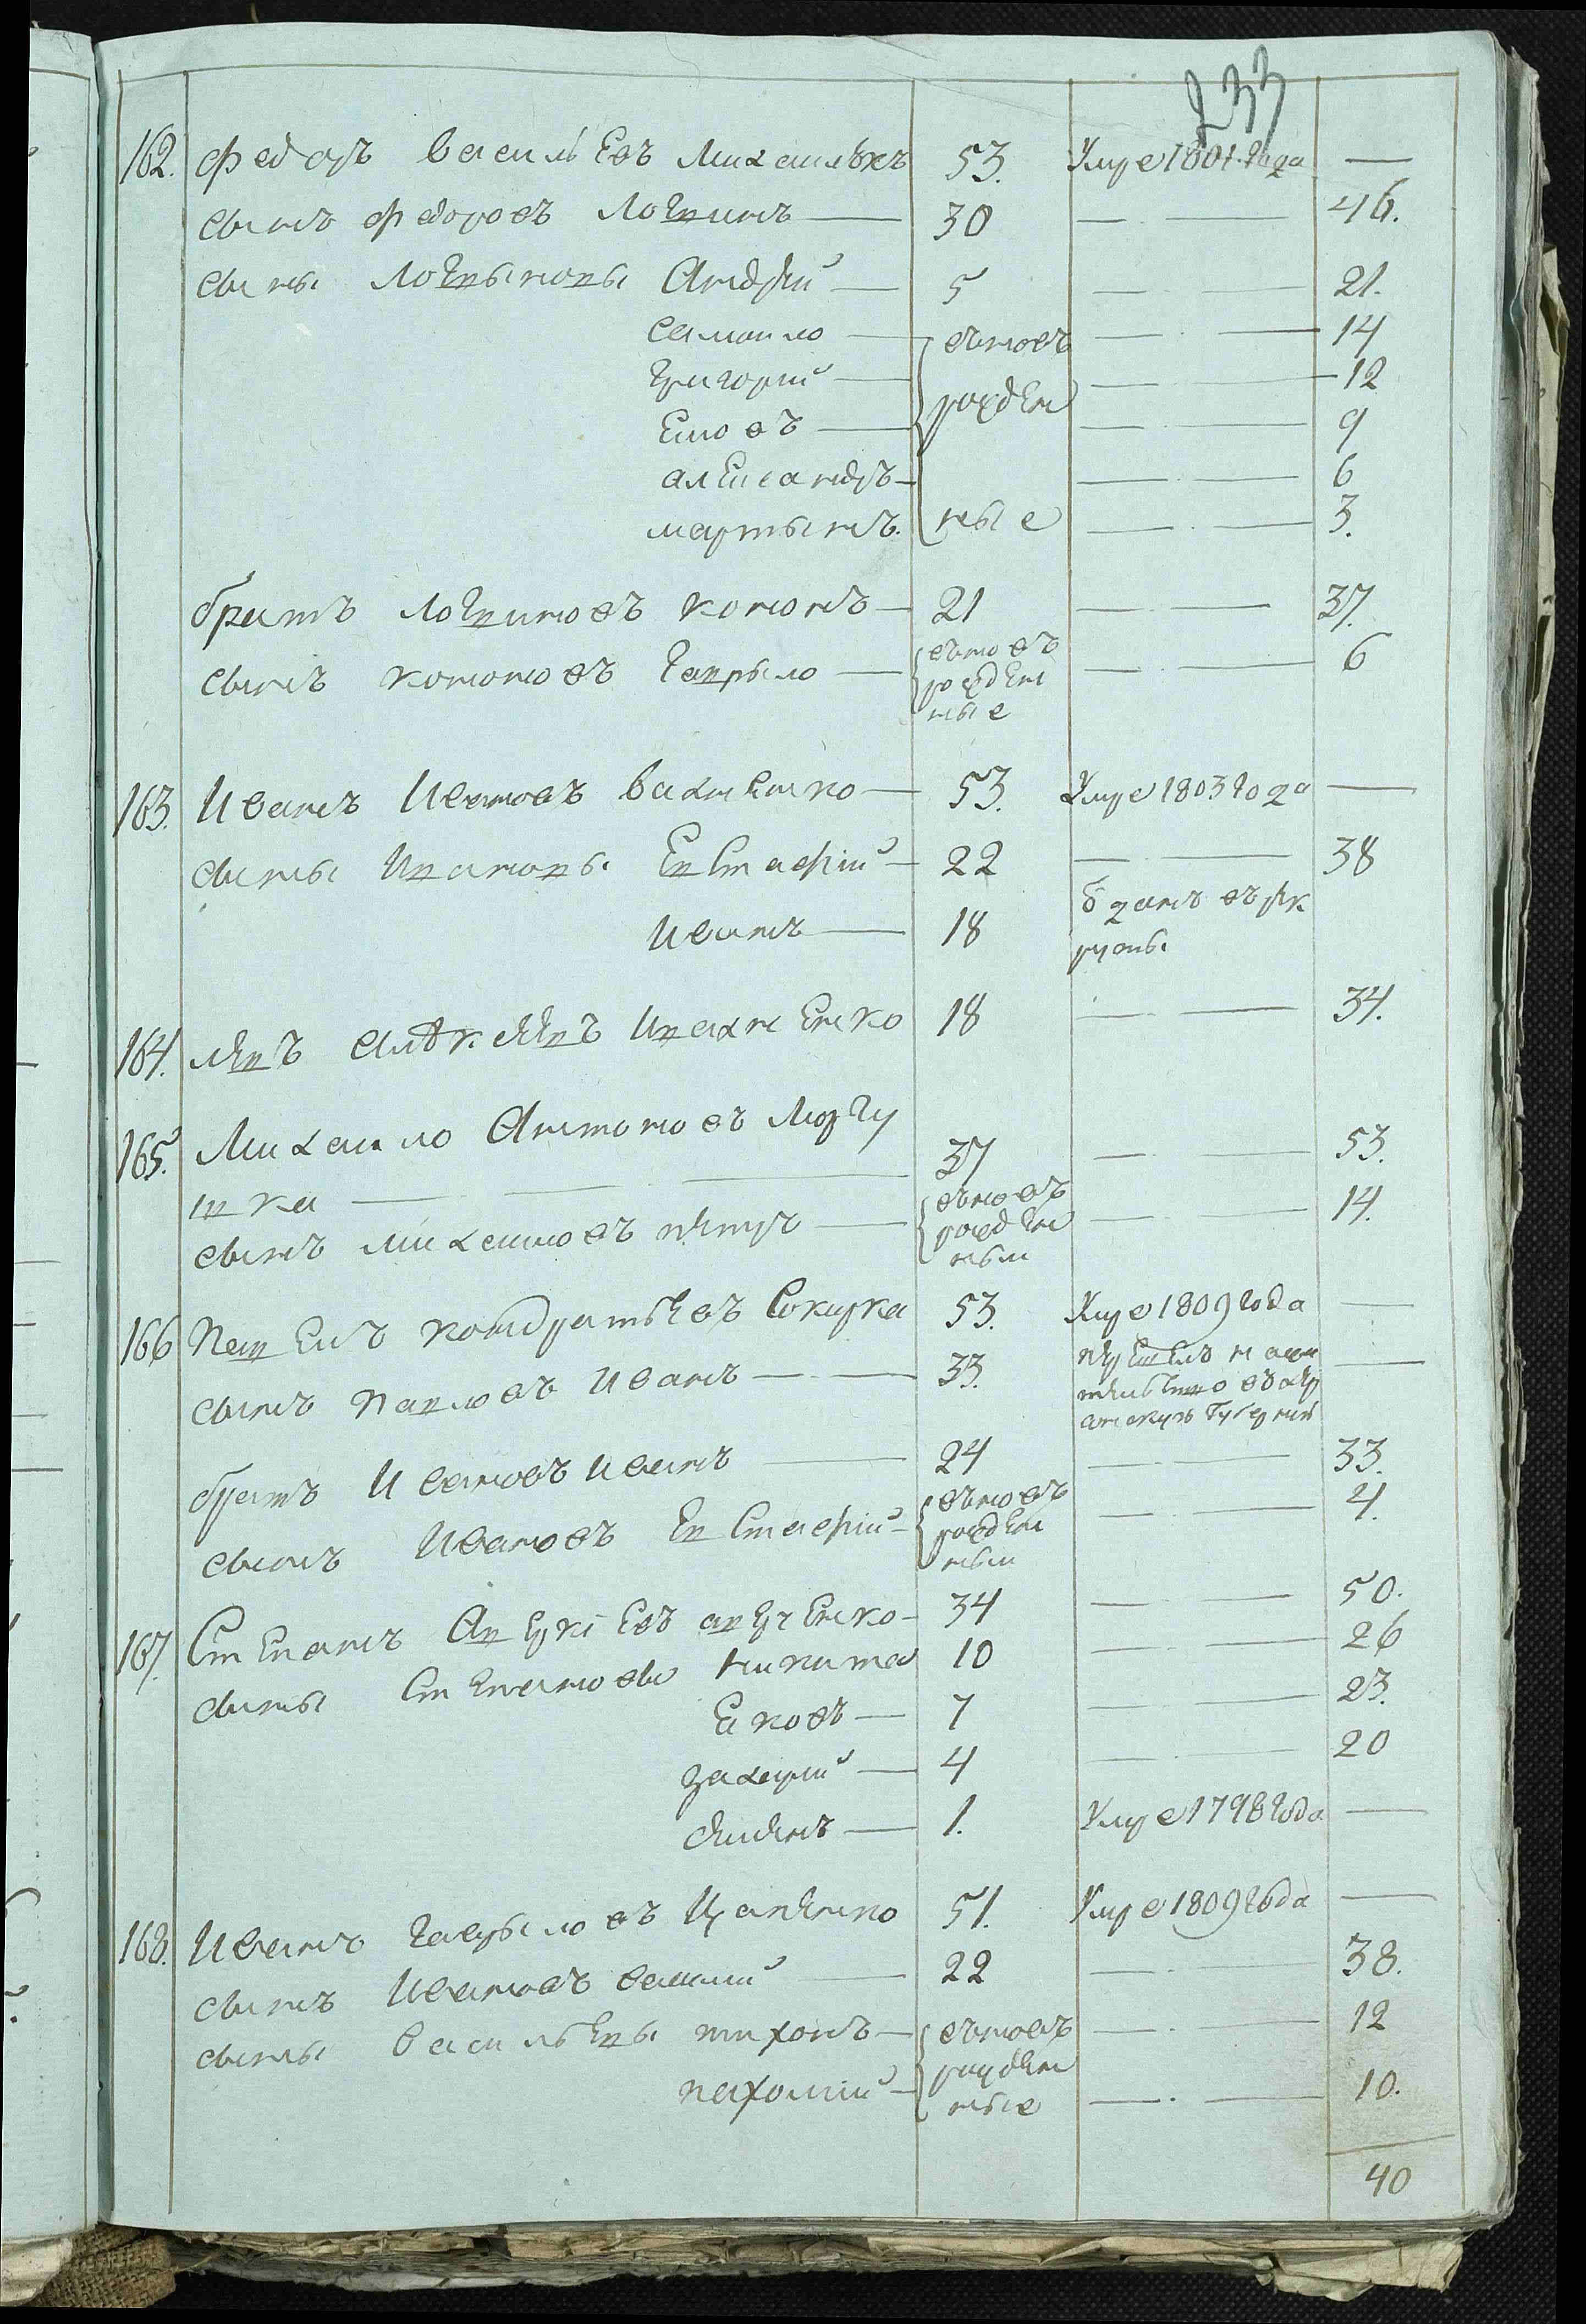 233
162. Федоръ Васильевъ Михайлѣкъ 53. Умре 1801 года —
сынъ Федоровъ Логвинъ — 30 — — 46.
сыны Логвыновы Андрей — 5 — — 21.
Самойло — вновь — — 14
Григорий — рожден — — 12
— — 9
александръ — — — 6
мартынъ. ные — — 3.
братъ Логвиновъ Кононъ — 21 — — 37.
сынъ Кононовъ Гаврыло — вновь — — 6
рожден
ные
163. Иванъ Ивановъ Вахненко — 53. Умре 1803 года —
сыны Ивановы Евстафий — 22 — — 38
Иванъ — 18 Зданъ въ рек
руты
164. левъ Ивахненко 18 — — 34.
165. Михайло Антоновъ
вка — — — 37 — — 53.
сынъ Михайловъ петръ — вновь — — 14.
рожден
ный
166 Павелъ Кондратьевъ Сокирка 53. Умре 1809 года —
сынъ Павловъ Иванъ — — 33. перешелъ на жи —
тельство въ Хер
сонскую Губернию
братъ Ивановъ Иванъ — 24 — — 33.
сынъ Ивановъ Евстафий — вновь — — 4.
рожден
ный
167. Степанъ Аверкиевъ аверченко — 34 — — 50.
сыны Степановы Никита 10 — — 26
Яковъ — 7 — — 23.
Захарий — 4 — — 20
семенъ — 1. Умре 1798 года —
168. Иванъ Гаврыловъ Цапенко 51. Умре 1809 года —
сынъ Ивановъ василий — 22 — — 38.
сыны Васильевы тихонъ — вновь — — 12
рожден
пахомий — ные — — 10.
40